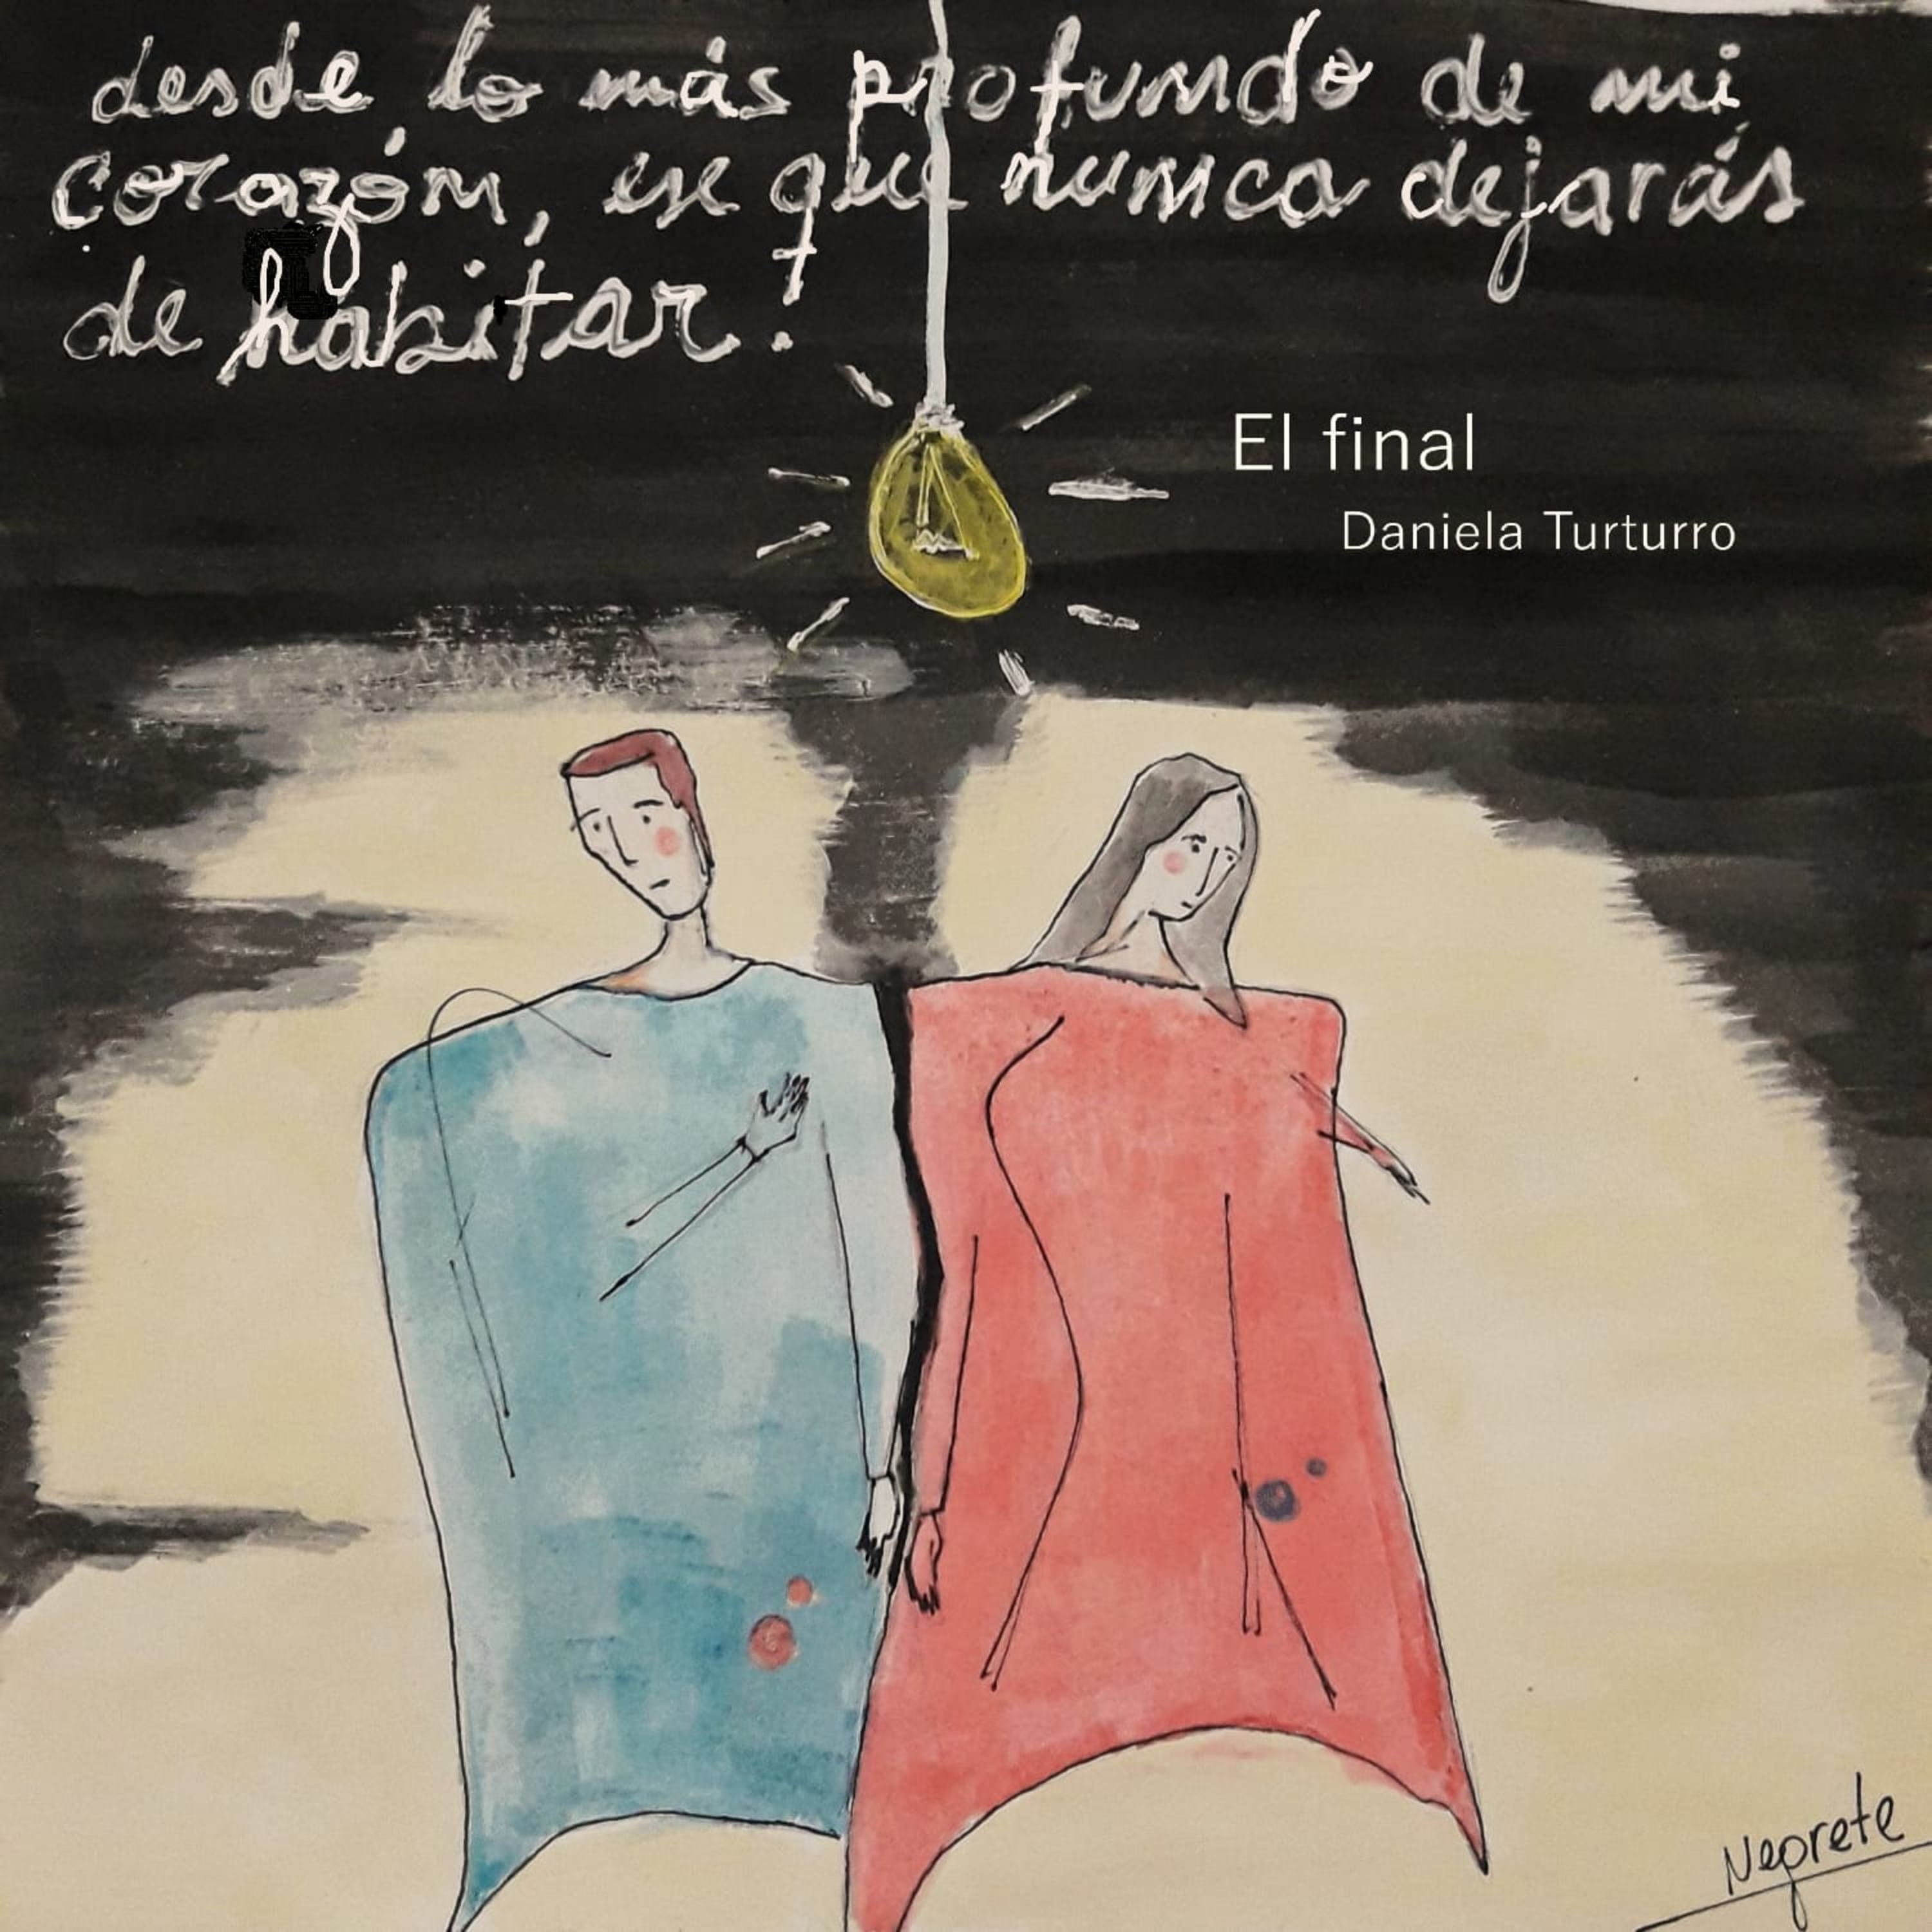 desde lo más profundo de mi
corazón, ese que nunca dejarás
de habitar!
El final
Daniela Turturro
Negrete